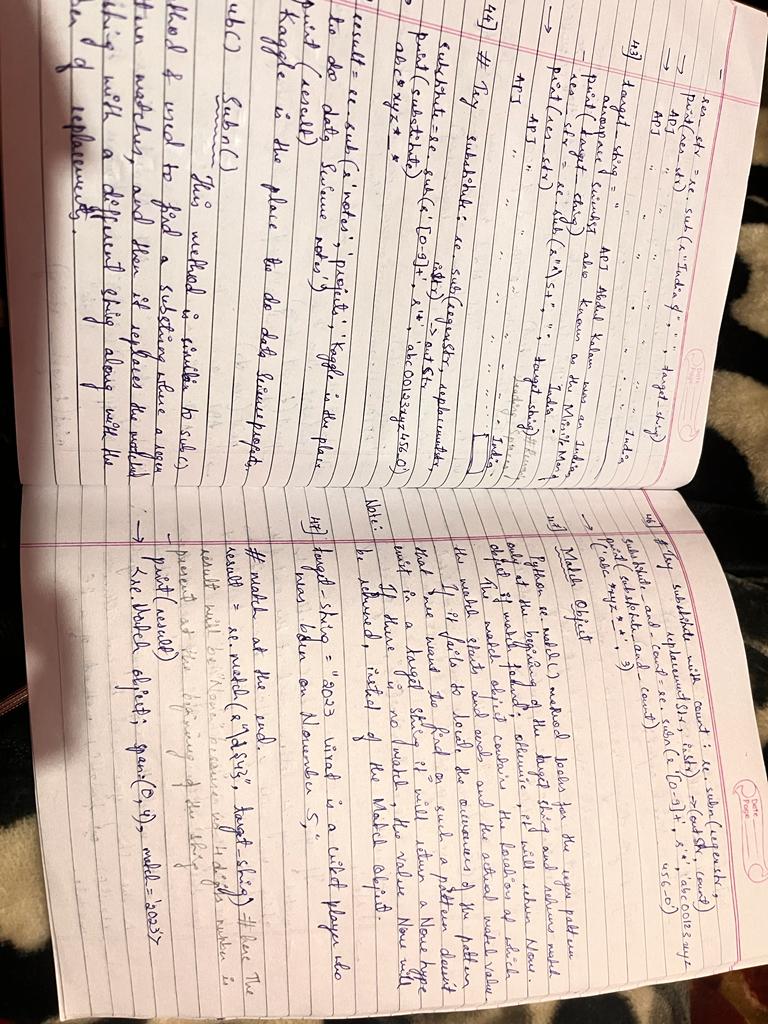 res_str = re.sub(r"India$", " ", target_string)
print(res_str)
→ API " " " " India
43] target_string = " API Abdul Kalam was an Indian
aerospace scientist also known as the Missile Man
- print(target_string)
res_str = re.sub(r"^\s+", "", target_string)
print(res_str)
→ API " " India
API " "
44] # Try substitute: re.sub(regexStr, replacementStr,
inStr) → outStr
substitute = re.sub(r'[0-9]+', r'*', 'abc00123xyz456_0')
print(substitute)
abc*xyz*_*
result = re.sub(r'notes', 'project', 'Kaggle is the place
to do data Science notes')
print (result)
Kaggle is the place to do data Science project,
Sub() Subn()
This method is similar to sub()
method & used to find a substring where a regex
pattern matches, and then it replaces the matched
string with a different string along with the
number of replacements.
Date
Page
46] # Try substitute with count: re.subn(regexStr,
replacementStr, inStr) → (outStr, count)
substitute_and_count = re.subn(r'[0-9]+', r'*', 'abc00123xyz
456_0')
print(substitute_and_count)
→ ('abc*xyz*_*', 3)
47] Match Object
Python re.match() method looks for the regex pattern
only at the begining of the target string and returns match
object if match found; otherwise, it will return None.
The match object contains the locations at which
the match starts and ends and the actual match value.
If it fails to locate the occurences of the pattern
that we want to find or such a pattern doesn't
exist in a target string it will return a None type
Note: If there is no match, the value None will
be returned, insted of the Match Object.
47] target_string = "2023 Virat is a criket player who
was born on November 5,"
# match at the end.
result = re.match(r"\d{4}", target_string) # here The
result will be None because no 4 digit number is
present at the beginning of the string
- print(result)
→ <re.Match object; span=(0,4), match='2023'>